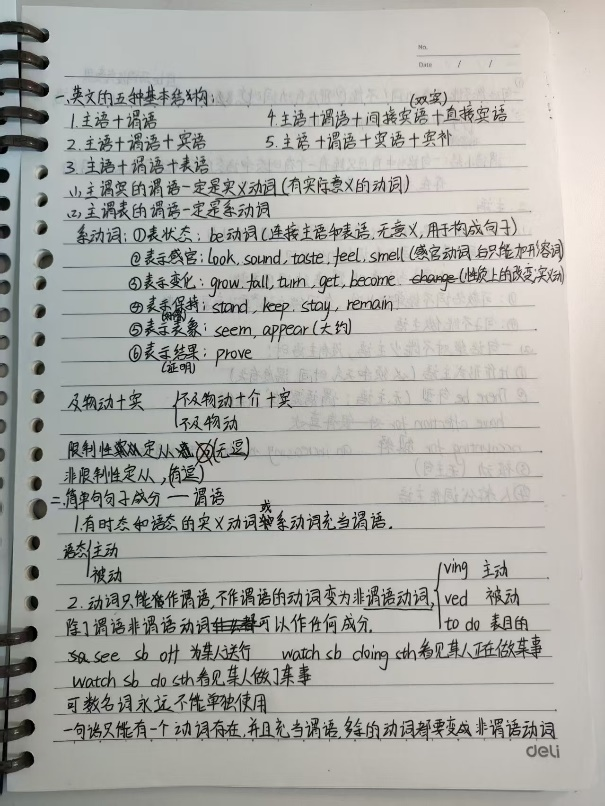 No.
Date / /
一、英文的五种基本结构:
(双宾)
1.主语+谓语 4.主语+谓语+间接宾语+直接宾语
2.主语+谓语+宾语 5.主语+谓语+宾语+宾补
3.主语+谓语+表语
(1)主谓宾的谓语一定是实义动词(有实际意义的动词)
(2)主谓表的谓语一定是系动词
系动词:①表状态:be动词(连接主语和表语,无意义,用于构成句子)
②表示感官:look, sound, taste, feel, smell(感官动词后只能加形容词)
③表示变化:grow, fall, turn, get, become change(性质上的改变,实义动)
④表示保持:stand, keep, stay, remain
⑤表示表象:seem, appear(大约)
⑥表示结果:prove
(证明)
及物动+宾 不及物动+介+宾
不及物动
限制性定从 (无逗)
非限制性定从,(有逗)
二、简单句句子成分——谓语
1.有时态和语态的实义动词或系动词充当谓语.
语态 主动
被动
ving 主动
2.动词只能作谓语,不作谓语的动词变为非谓语动词, ved 被动
除了谓语非谓语动词可以作任何成分. to do 表目的
see sb off 为某人送行 watch sb doing sth看见某人正在做某事
watch sb do sth看见某人做了某事
可数名词永远不能单独使用
一句话只能有一个动词存在,并且充当谓语,多余的动词都要变成非谓语动词
deli